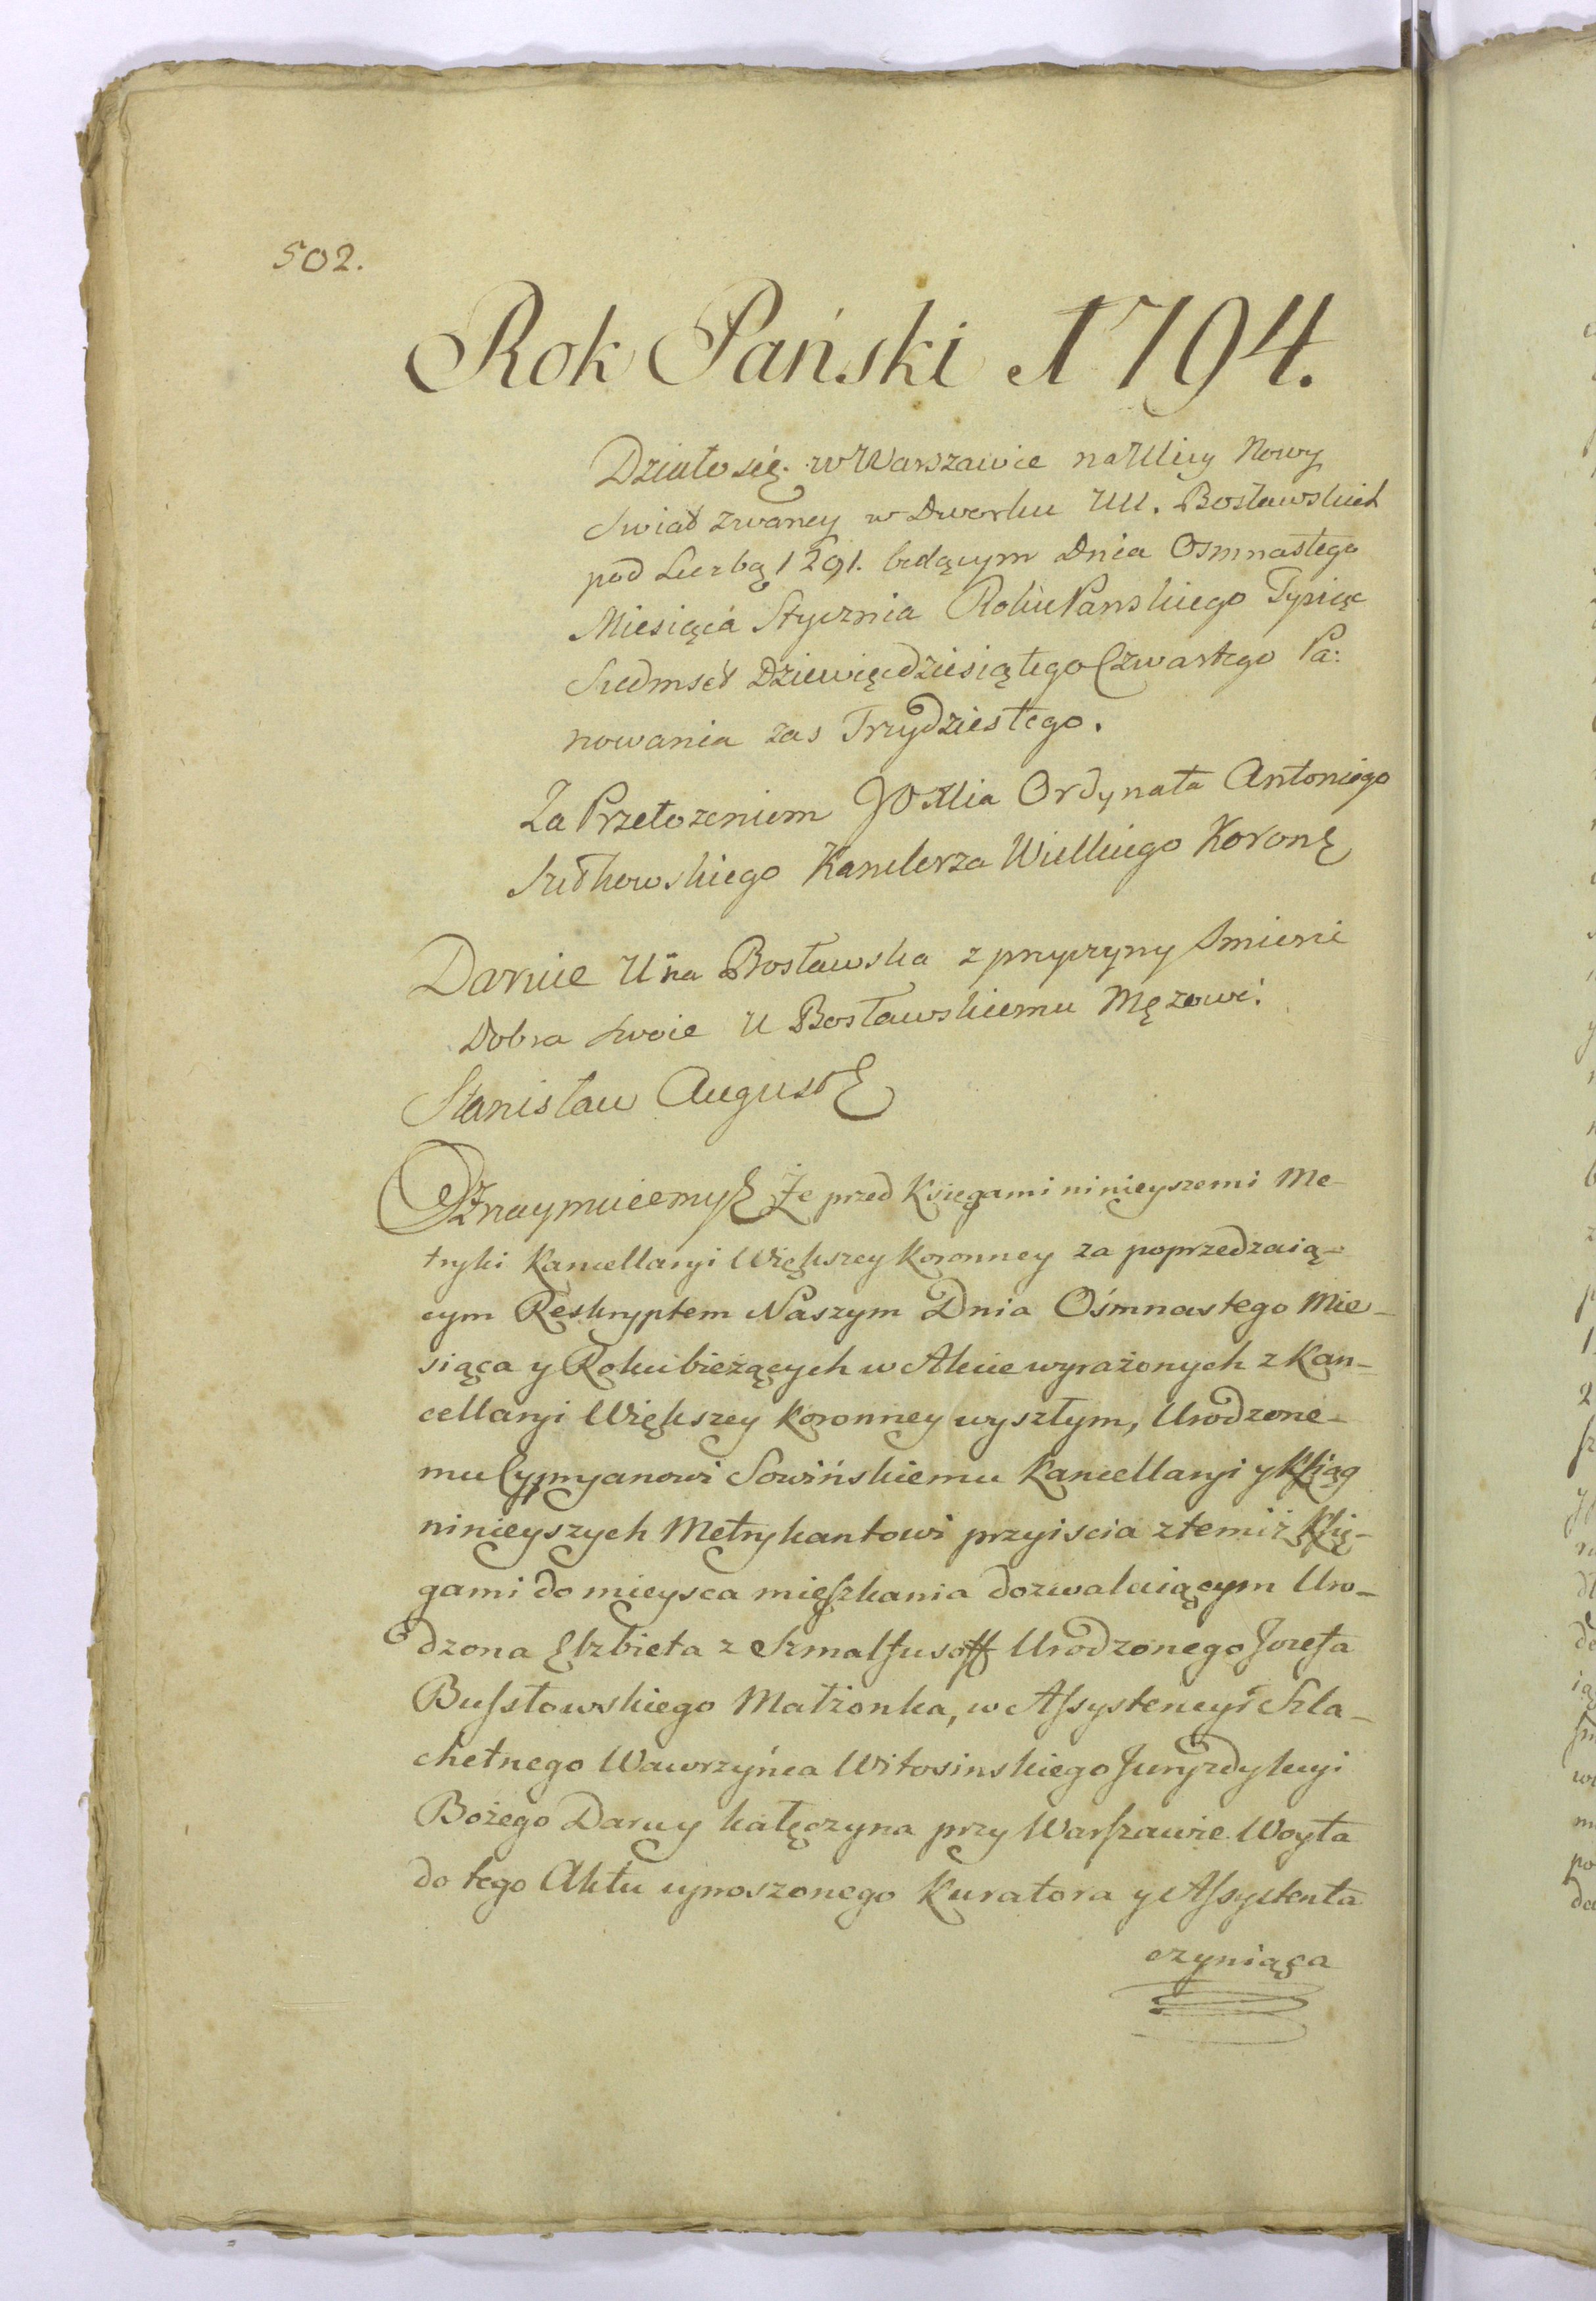 502.
Rok Pański 1794.
Działo się w Warszawie na Ulicy Nowy
Swiat zwaney w Dworku UU. Bosławskich
pod Liczbą 1291. będącym Dnia Osmnastego
Miesiąca Stycznia Roku Panskiego Tysiąc
Siedmset Dziewięcdziesiątego Czwartego Pa:
nowania zas Trzydziestego.
Za Przełozeniem JO Xcia Ordynata Antoniego
Sułkowskiego Kanclerza Wielkiego Koronę
Daruie Una Bosławska z przyczyny Smierci
Dobra swoie U Bosławskiemu Męzowi.
Stanisław August
Oznaymuiemy Że przed Księgami ninieyszemi Me-
tryki Kancellaryi Większey Koronney za poprzedzaią-
cym Reskryptem Naszym Dnia Ośmnastego Mie-
siąca y Roku bieżących w Akcie wyrażonych z Kan-
cellaryi Większey Koronney wyszłym, Urodzone-
mu Cypryanowi Sowińskiemu Kancellaryi y Xsiąg
ninieyszych Metrykantowi przyiscia z temiż Xsię-
gami do mieysca mięszkania dozwalaiącym Uro-
dzona Elzbieta z Szmalfusoff Urodzonego Jozefa
Bussłowskiego Małżonka, w Assystencyi Szla-
chetnego Wawrzyńca Witosinskiego Juryzdykcyi
Bożego Daru y kałęczyna przy Warszawie Woyta
do tego Aktu uproszonego Kuratora y Assystenta
czyniąca